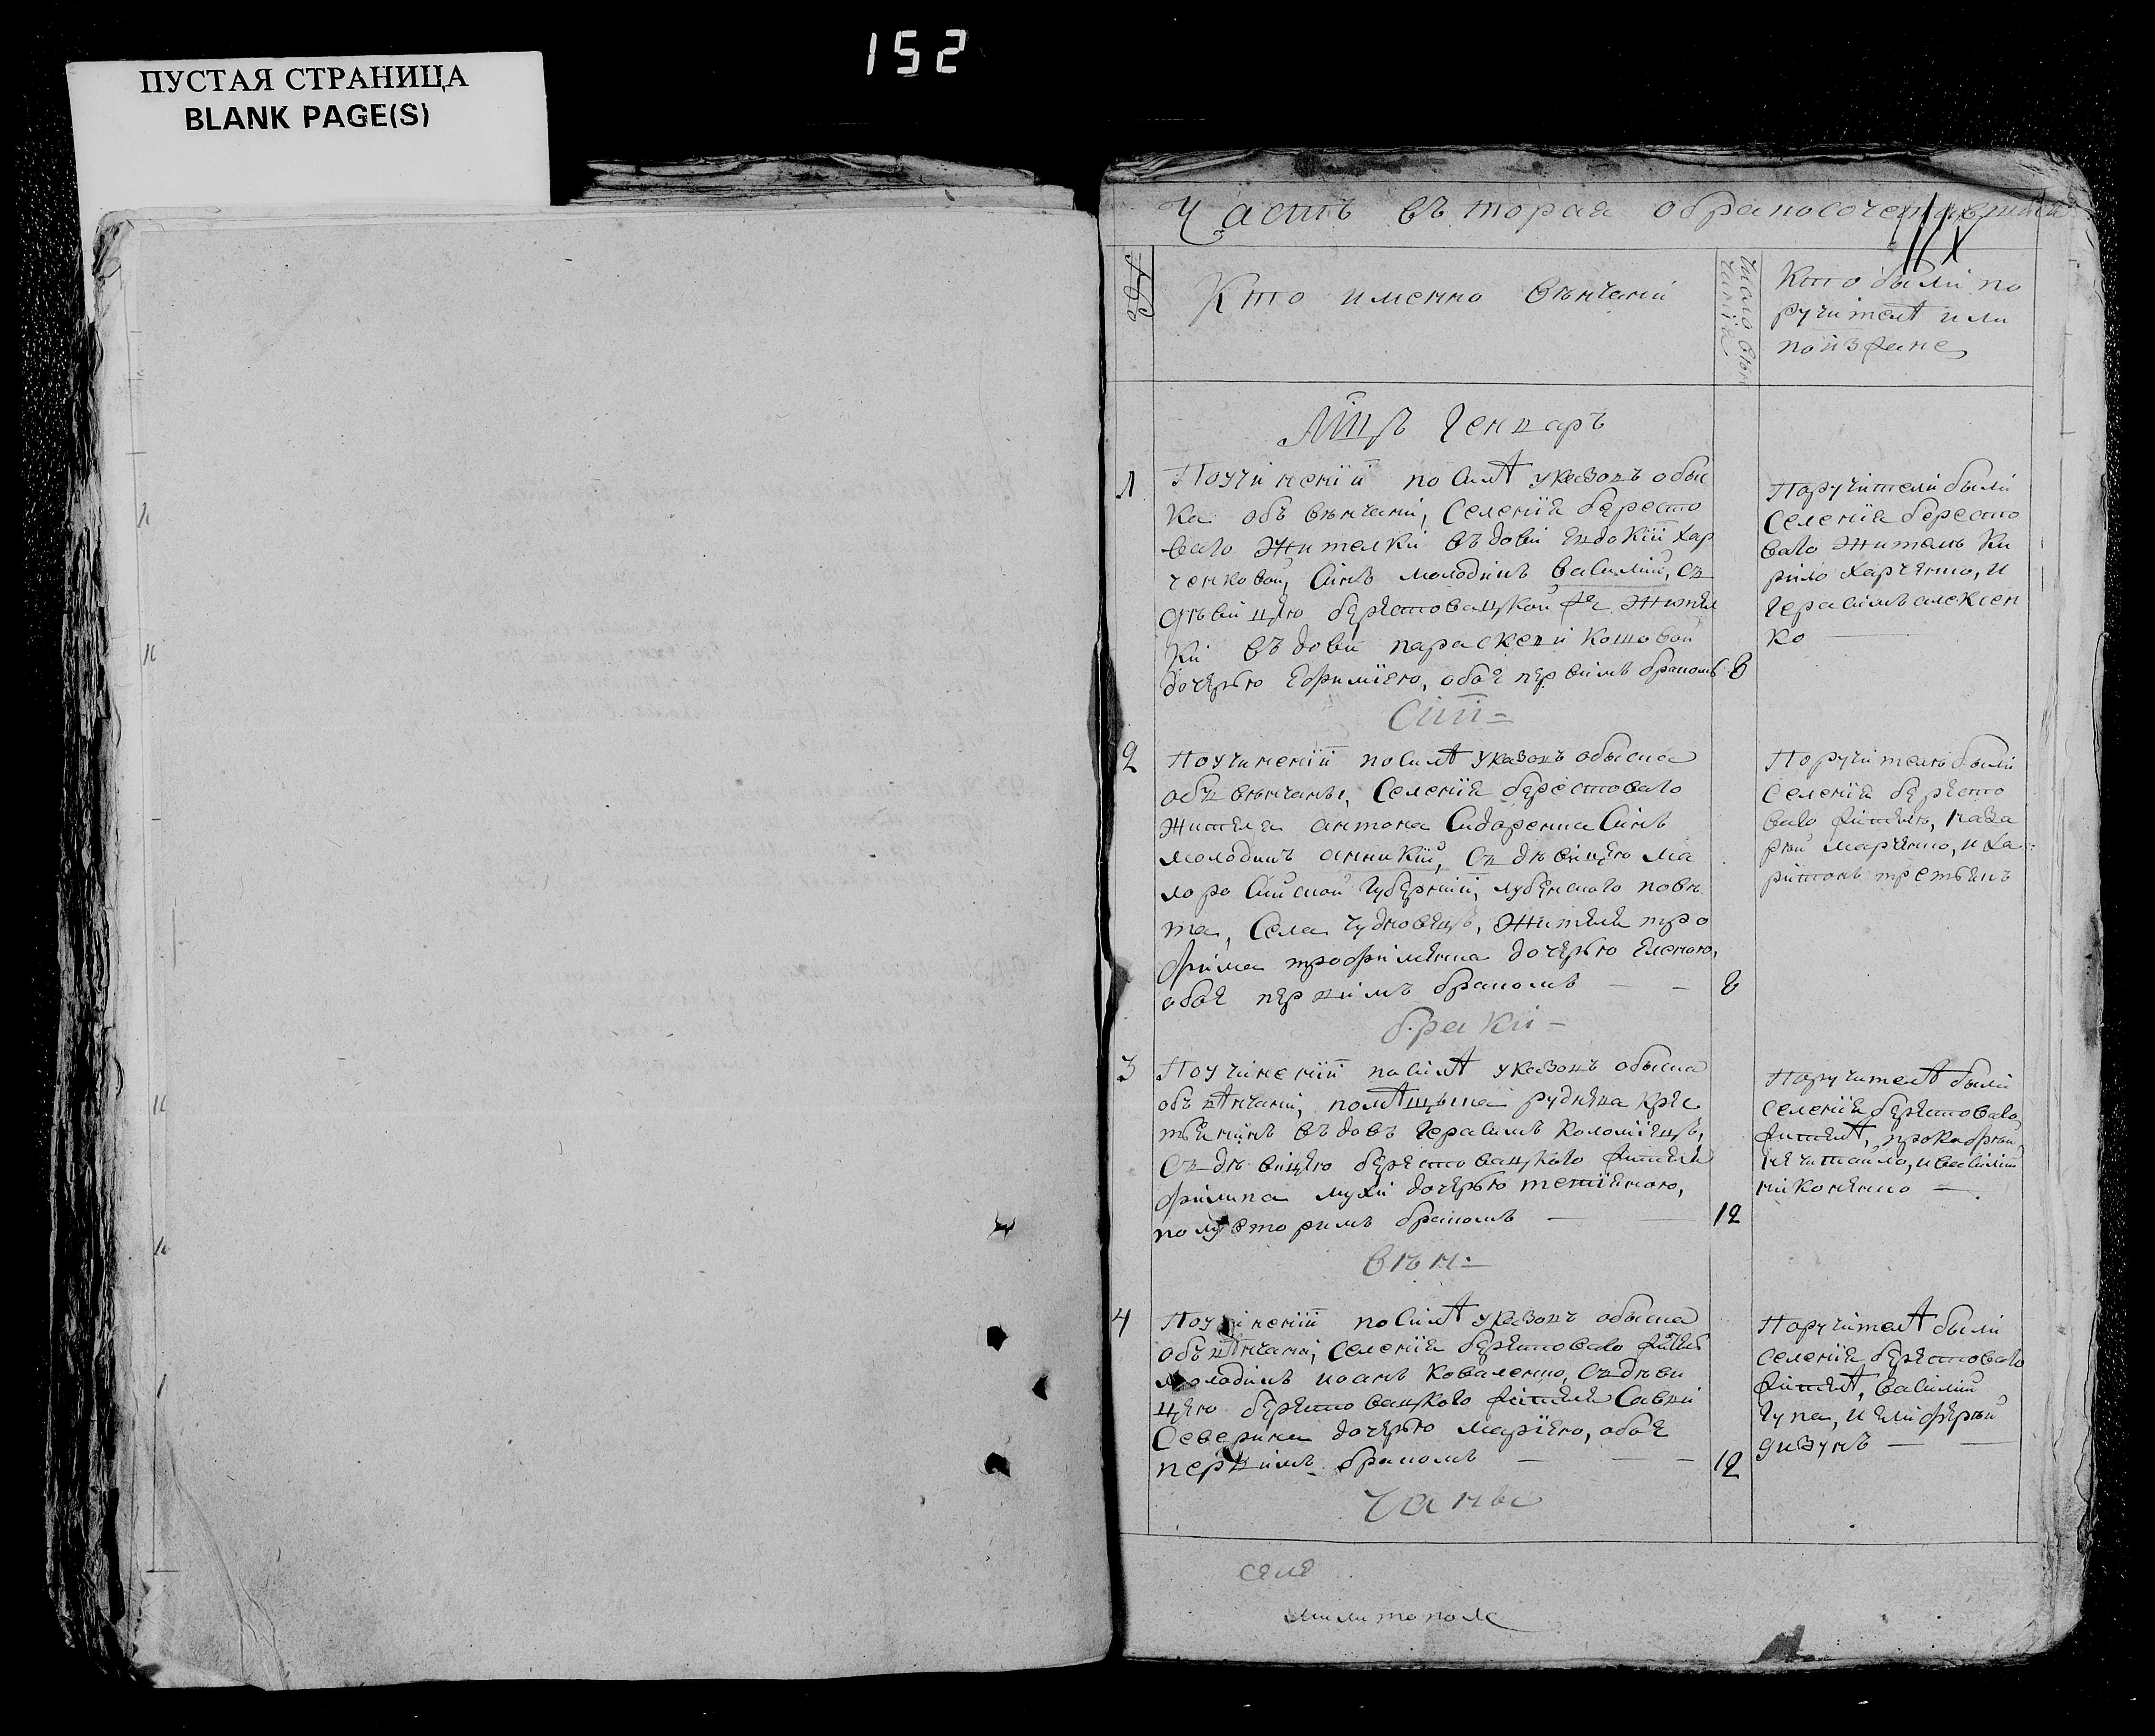 152
ПУСТАЯ СТРАНИЦА
BLANK PAGE(S)
Часть въторая обракосочетавшихся
Кто именно вѣнчани
число вѣн
чанія
Кто были по
ручителѣ или
поизвѣ
Мцъ Генваръ
1
Поучиненіи по силѣ указовъ обыс
ка объ вѣнчани, Селенія бересто
ваго жителки въдови Евдокіи Хар
ченковой, Синъ молодикъ Василий, съ
дѣвицею берестовацкой жител
ки въдови параскеви Кошовой
дочерью Ефимією, обое первимъ бракомъ
8
Поручители были
Селенія бересто
ваго житель Ки
рило Харченко, и
Герасимъ алексен
ко
Сіи
2
Поучиненіи по силѣ указовъ обыска
объ вѣнчаны, Селенія берестоваго
жителя антона Сидоренка Синъ
молодикъ анникій, съ дѣвицею ма
лоросийской губерніи, лубенского повѣ
та, Села Чудновецъ, жителя тро
фима трофименка дочерью Еленою,
обое первимъ бракомъ
8
Поручителѣ были
Селенія бересто
ваго жителѣ, наза
рій марченко, и ха
ритонъ третьякъ
браки
3
Поучиненіи по силѣ указовъ обыска
объ вѣнчани, помѣщика руднева крес
тьянинъ въдовъ Герасимъ Коломіецъ,
съ дѣвицею берестовацкого жителя
филипа мухи дочерью тетіеною,
полувторимъ бракомъ
12
Поручителѣ были
Селенія берестоваго
жителѣ, прокофій
нечитайло, и василий
никоненко
вѣн
4
Поучиненіи по силѣ указовъ обыска
объ вѣнчани, Селенія берестоваго житель
молодикъ иоанъ Коваленко, съ дѣви
цею берестовацкого жителя Савви
Северина дочерью марією, обое
первимъ бракомъ
12
Поручителѣ были
Селенія берестоваго
жителѣ, василий
Гупа, и елифѣрій
дизунъ
чаны
селѣ